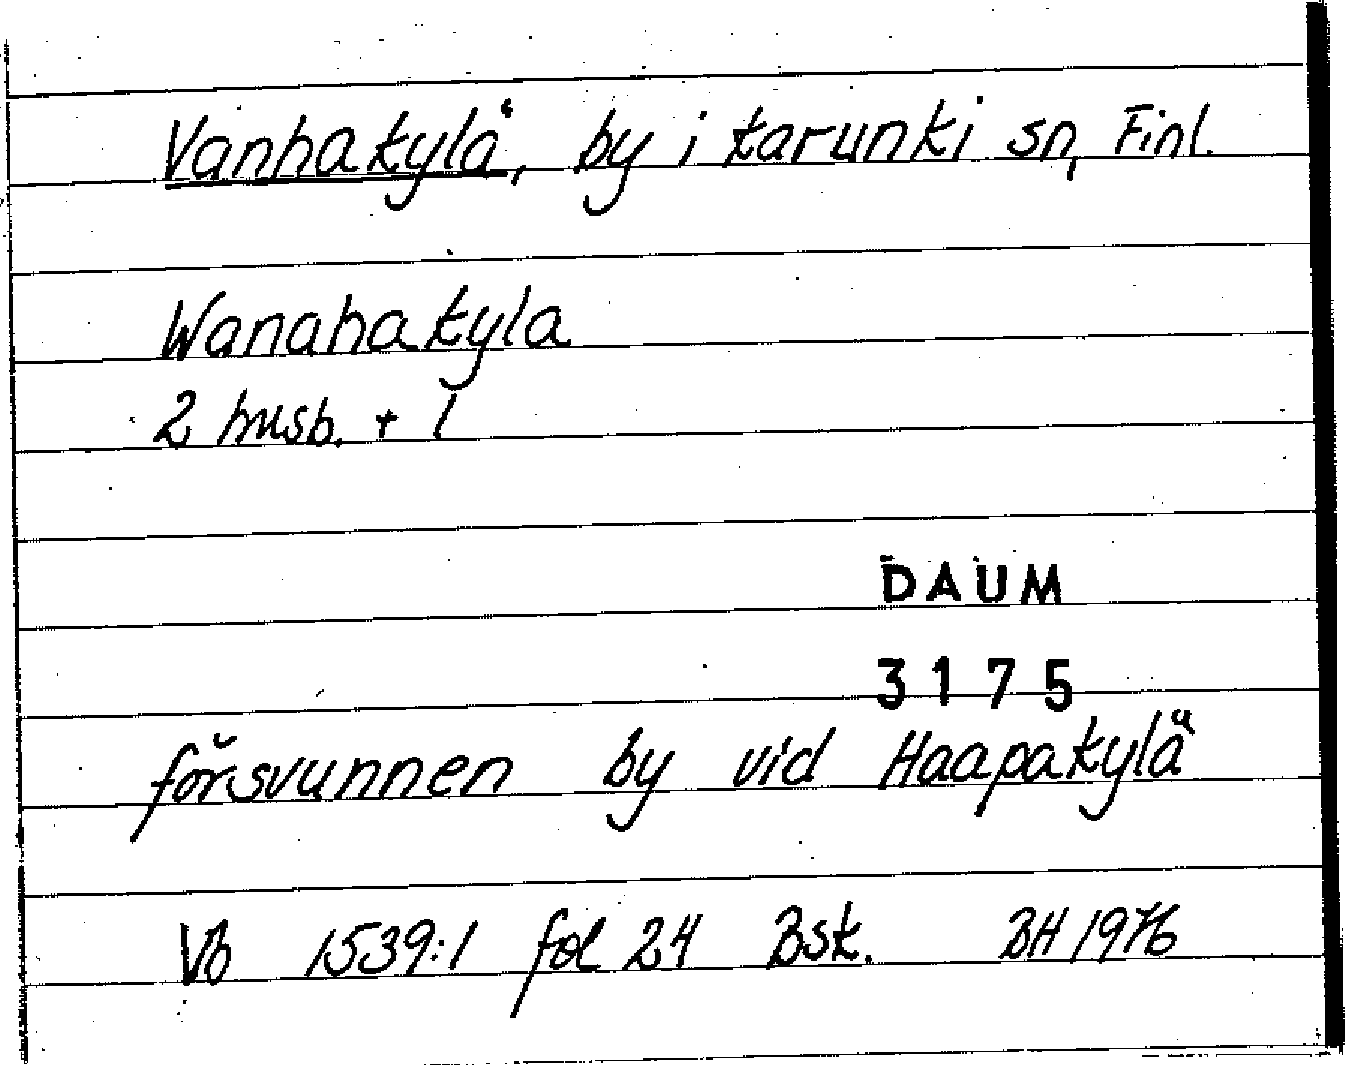 Vanhakylä, by i Karunki sn, Finl.
Wanahakyla
2 husb. + l
DAUM
3175
försvunnen by vid Haapakylä
Vb 1539:1 fol 24 Bsk. BH 1976